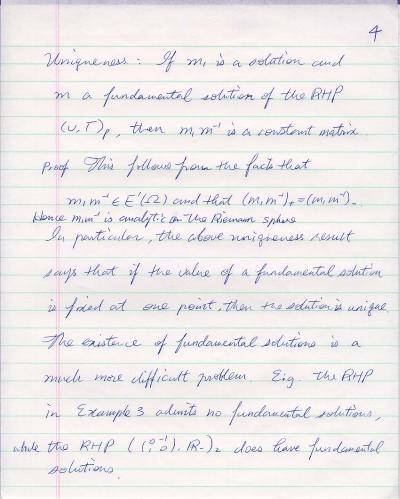 4
Uniqueness: If m₁ is a solution and
m a fundamental solution of the RHP
(v,Γ)ₚ, then m₁m⁻¹ is a constant matrix.
Proof This follows from the facts that
m₁m⁻¹ ∈ E¹(Ω) and that (m₁m⁻¹)₊=(m₁m⁻¹)₋
Hence m₁m⁻¹ is analytic on the Riemann sphere
In particular, the above uniqueness result
says that if the value of a fundamental solution
is fixed at one point, then the solution is unique.
The existence of fundamental solutions is a
much more difficult problem. E.g. the RHP
in Example 3 admits no fundamental solutions,
while the RHP ((0 -1 1 0), R₋)₂ does have fundamental
solutions.